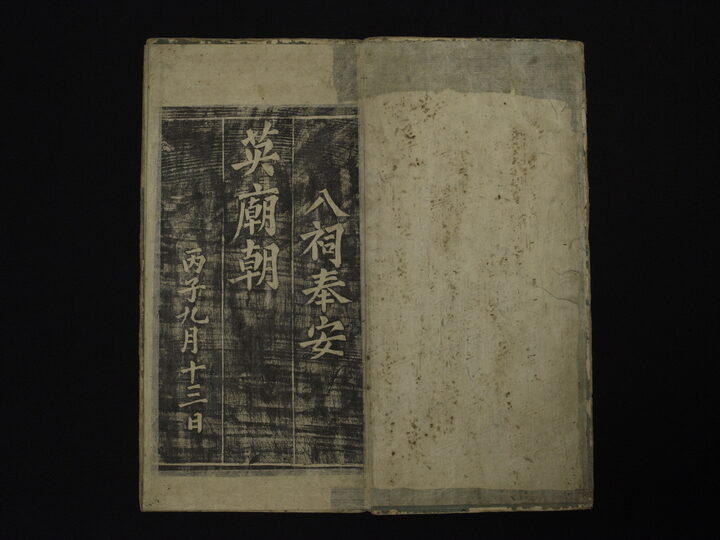 八祠奉安
英廟朝
丙子九月十三日